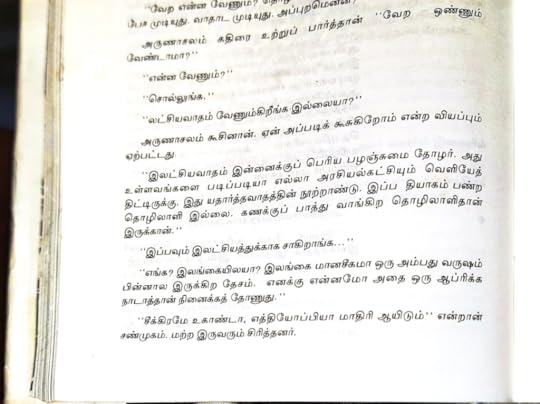 ''வேற என்ன வேணும்?
பேச முடியுது. வாதாட முடியுது. அப்புறமென்ன?''
அருணாசலம் கதிரை உற்றுப் பார்த்தான் ''வேற ஒண்ணும்
வேண்டாமா?''
''என்ன வேணும்?''
''சொல்லுங்க.''
''லட்சியவாதம் வேணும்கிறீங்க இல்லையா?''
அருணாசலம் கூசினான். ஏன் அப்படிக் கூசுகிறோம் என்ற வியப்பும்
ஏற்பட்டது.
''இலட்சியவாதம் இன்னைக்குப் பெரிய பழஞ்சுமை தோழர். அது
உள்ளவங்களை படிப்படியா எல்லா அரசியல்கட்சியும் வெளியேத்
திட்டிருக்கு. இது யதார்த்தவாதத்தின் நூற்றாண்டு. இப்ப தியாகம் பண்ற
தொழிலாளி இல்லை. கணக்குப் பாத்து வாங்கிற தொழிலாளிதான்
இருக்கான்.''
''இப்பவும் இலட்சியத்துக்காக சாகிறாங்க...''
''எங்க? இலங்கையிலயா? இலங்கை மானசீகமா ஒரு அம்பது வருஷம்
பின்னால இருக்கிற தேசம். எனக்கு என்னமோ அதை ஒரு ஆப்ரிக்க
நாடாத்தான் நினைக்கத் தோணுது.''
''சீக்கிரமே உகாண்டா, எத்தியோப்பியா மாதிரி ஆயிடும்'' என்றான்
சண்முகம். மற்ற இருவரும் சிரித்தனர்.